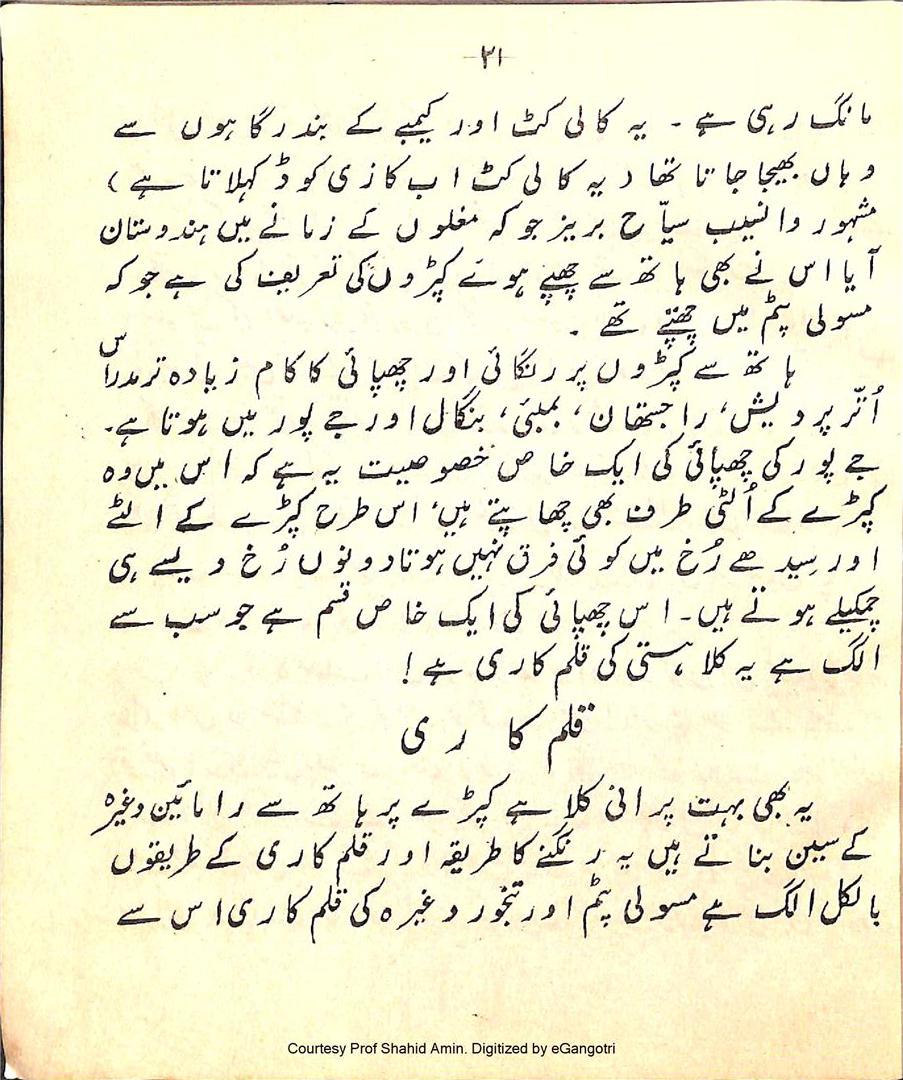 -۲۱-
مانگ رہی ہے ۔ یہ کالی کٹ اور کیمبے کے بندرگاہوں سے
وہاں بھیجا جاتا تھا (یہ کالی کٹ اب کازی کوڈ کہلاتا ہے)
مشہور وانسیب سیّاح بریز جو کہ مغلوں کے زمانے میں ہندوستان
آیا اس نے بھی ہاتھ سے چھپے ہوئے کپڑوں کی تعریف کی ہے جو کہ
مسولی پٹم میں چھپتے تھے ۔
ہاتھ سے کپڑوں پر رنگائی اور چھپائی کا کام زیادہ تر مدراس
اُتّر پردیش، راجستھان، بمبئی، بنگال اور جے پور میں ہوتا ہے۔
جے پور کی چھپائی کی ایک خاص خصوصیت یہ ہے کہ اس میں وہ
کپڑے کے اُلٹی طرف بھی چھاپتے ہیں، اس طرح کپڑے کے الٹے
اور سیدھے رُخ میں کوئی فرق نہیں ہوتا دونوں رُخ ویسے ہی
چمکیلے ہوتے ہیں۔ اس چھپائی کی ایک خاص قسم ہے جو سب سے
الگ ہے یہ کلا ہستی کی قلم کاری ہے!
قلم کاری
یہ بھی بہت پرانی کلا ہے کپڑے پر ہاتھ سے رامائین وغیرہ
کے سین بناتے ہیں یہ رنگنے کا طریقہ اور قلم کاری کے طریقوں
بالکل الگ ہے مسولی پٹم اور تنجور وغیرہ کی قلم کاری اس سے
Courtesy Prof Shahid Amin. Digitized by eGangotri